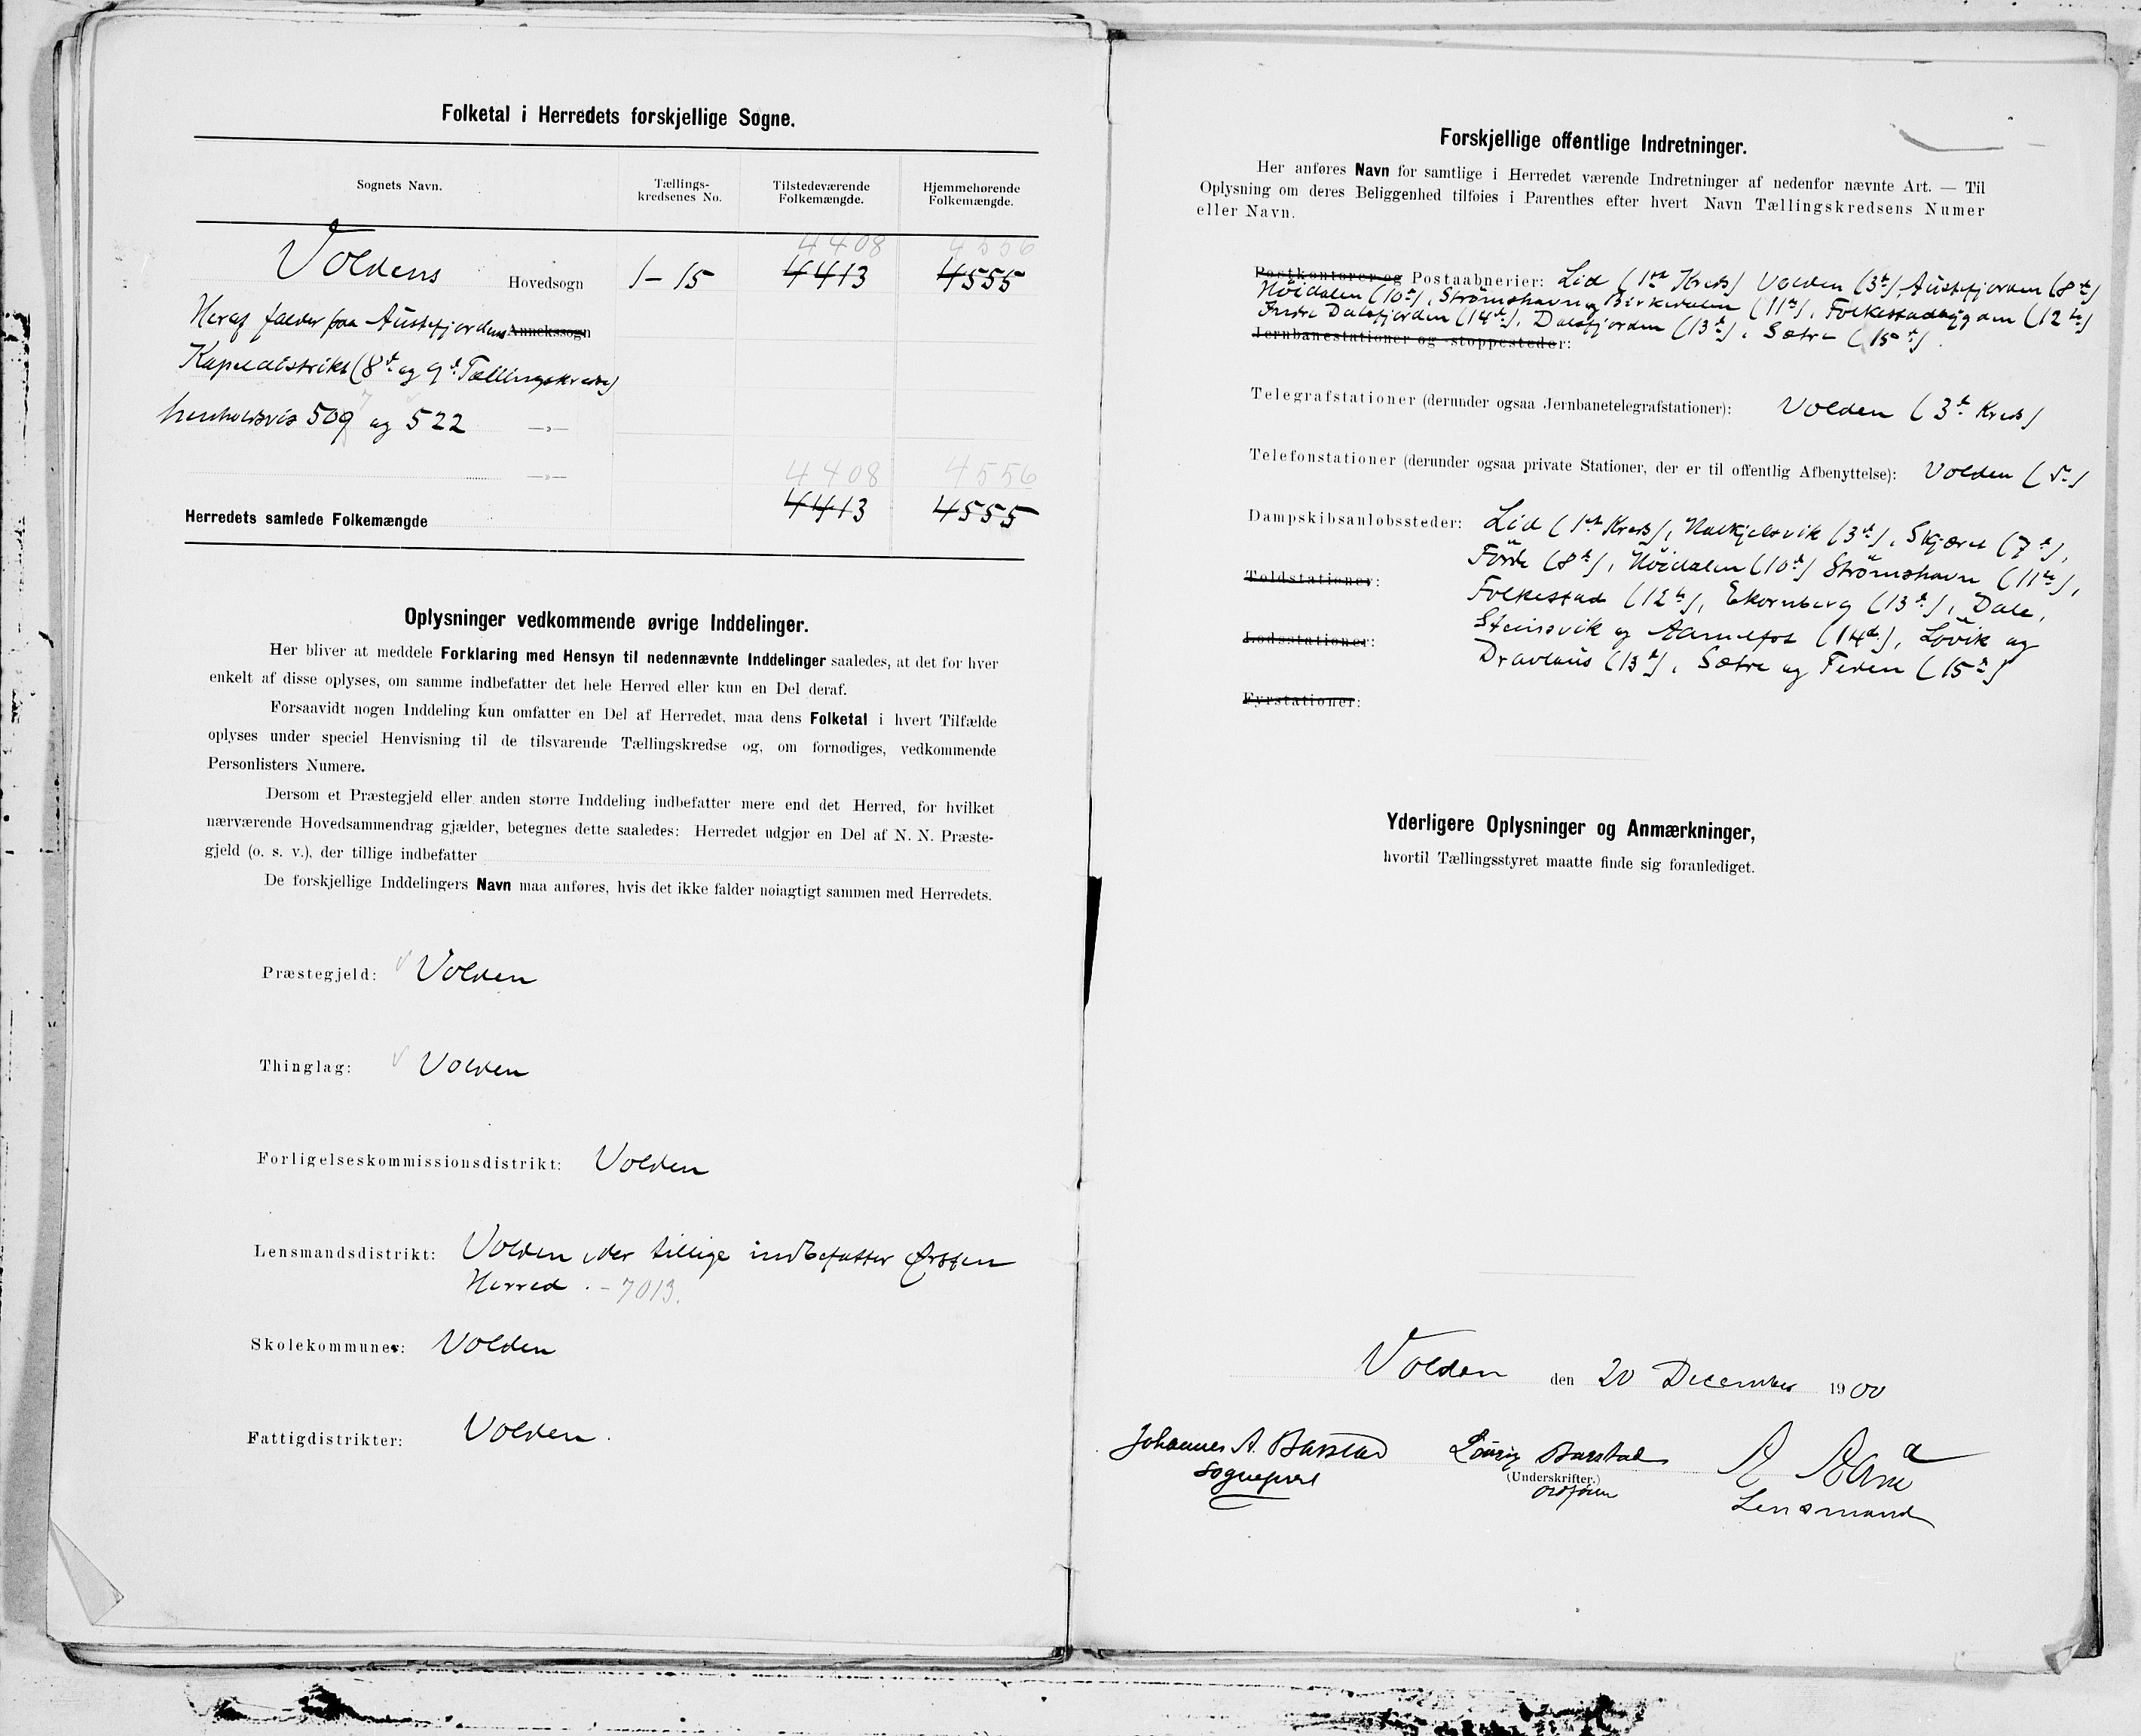 Folketal i Herredets forskjellige Sogne.
Sognets Navn.
Tællings-
kredsenes No.
Tilstedeværende
Folkemængde.
Hjemmehørende
Folkemængde.
4408 4556
Voldens Hovedsogn 1-15 4413 4555
Heraf falder paa Austefjordens Annekssogn
Kapeldistrikt (8de og 9de Tællingskreds)
henholdsvis 509 og 522 —»—
—»— 4408 4556
Herredets samlede Folkemængde 4413 4555
Oplysninger vedkommende øvrige Inddelinger.
Her bliver at meddele Forklaring med Hensyn til nedennævnte Inddelinger saaledes, at det for hver
enkelt af disse oplyses, om samme indbefatter det hele Herred eller kun en Del deraf.
Forsaavidt nogen Inddeling kun omfatter en Del af Herredet, maa dens Folketal i hvert Tilfælde
oplyses under speciel Henvisning til de tilsvarende Tællingskredse og, om fornødiges, vedkommende
Personlisters Numere.
Dersom et Præstegjeld eller anden større Inddeling indbefatter mere end det Herred, for hvilket
nærværende Hovedsammendrag gjælder, betegnes dette saaledes: Herredet udgjør en Del af N. N. Præste-
gjeld (o. s. v.), der tillige indbefatter
De forskjellige Inddelingers Navn maa anføres, hvis det ikke falder nøiagtigt sammen med Herredets.
Præstegjeld: Volden
Thinglag: Volden
Forligelseskommissionsdistrikt: Volden
Lensmandsdistrikt: Volden, der tillige indbefatter Ørsten
Herred. - 7013.
Skolekommuner: Volden
Fattigdistrikter: Volden.
Forskjellige offentlige Indretninger.
Her anføres Navn for samtlige i Herredet værende Indretninger af nedenfor nævnte Art. — Til
Oplysning om deres Beliggenhed tilføies i Parenthes efter hvert Navn Tællingskredsens Numer
eller Navn.
Postkontorer og Postaabnerier: Lid (1ste Kreds) Volden (3de), Austefjorden (8de)
Høidalen (10de), Strømshavn og Birkedalen (11te), Folkestadbygden (12te)
Indre Dalsfjorden (14de), Dalsfjorden (13de), Sætre (15de).
Jernbanestationer og -stoppesteder:
Telegrafstationer (derunder ogsaa Jernbanetelegrafstationer): Volden (3de Kreds)
Telefonstationer (derunder ogsaa private Stationer, der er til offentlig Afbenyttelse): Volden
Dampskibsanløbssteder: Lid (1ste Kreds), Halkjelsvik (3de), Skjæret (7de),
Førde (8de), Høidalen (10de) Strømshavn (11te),
Toldstationer:
Folkestad (12te), Ekornberg (13de), Dale,
Steinsvik og Aamelfot (14de), Løvik og
Lodsstationer:
Dravlaus (13de), Sætre og Ferden (15de)
Fyrstationer:
Yderligere Oplysninger og Anmærkninger,
hvortil Tællingsstyret maatte finde sig foranlediget.
Volden den 20 December 1900
Johannes A. Barstad Barstad
Sogneprest (Underskrifter.) Ordfører
Lensmand